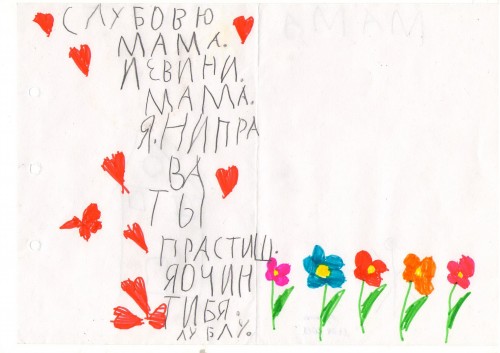 СЛУБОВЮ
МАМА.
ИЕВИНИ.
МАМА.
Я.НИПРА
ВА
ТЫ
ПРАСТИШ.
ЯОЧИН
ТИБЯ.
ЛУБЛУ.
МАМА